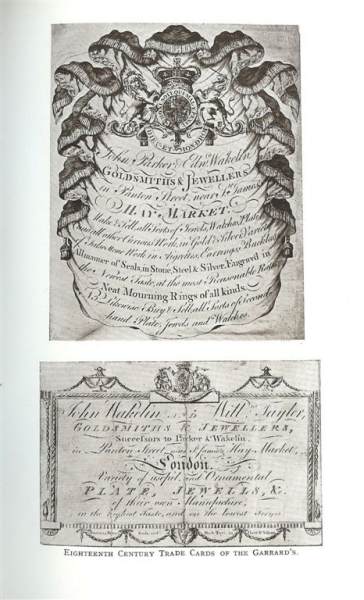 John Parker & Edwd. Wakelin,
GOLDSMITHS & JEWELLERS
in Panton Street, near St. James's
HAY-MARKET.
Make & Sell all Sorts of Jewels, Watches, Plate,
and all other Curious Work, in Gold & Silver, Varieties
of False Stone Work in Aigrettes, Earrings, Buckles
All manner of Seals, in Stone, Steel & Silver, Engraved in
the Newest Taste, at the most Reasonable Rates.
Neat Mourning Rings of all kinds.
NB. Likewise Buy & Sell all Sorts of Second
hand Plate, Jewels and Watches.
John Wakelin and Willm. Tayler,
GOLDSMITHS & JEWELLERS,
Successors to Parker & Wakelin,
in Panton Street near St. James's Hay-Market,
London.
Variety of useful and Ornamental
PLATE, JEWELLS, &c.
of their own Manufacture,
in the highest Taste, and on the lowest Terms
EIGHTEENTH CENTURY TRADE CARDS OF THE GARRARD'S.